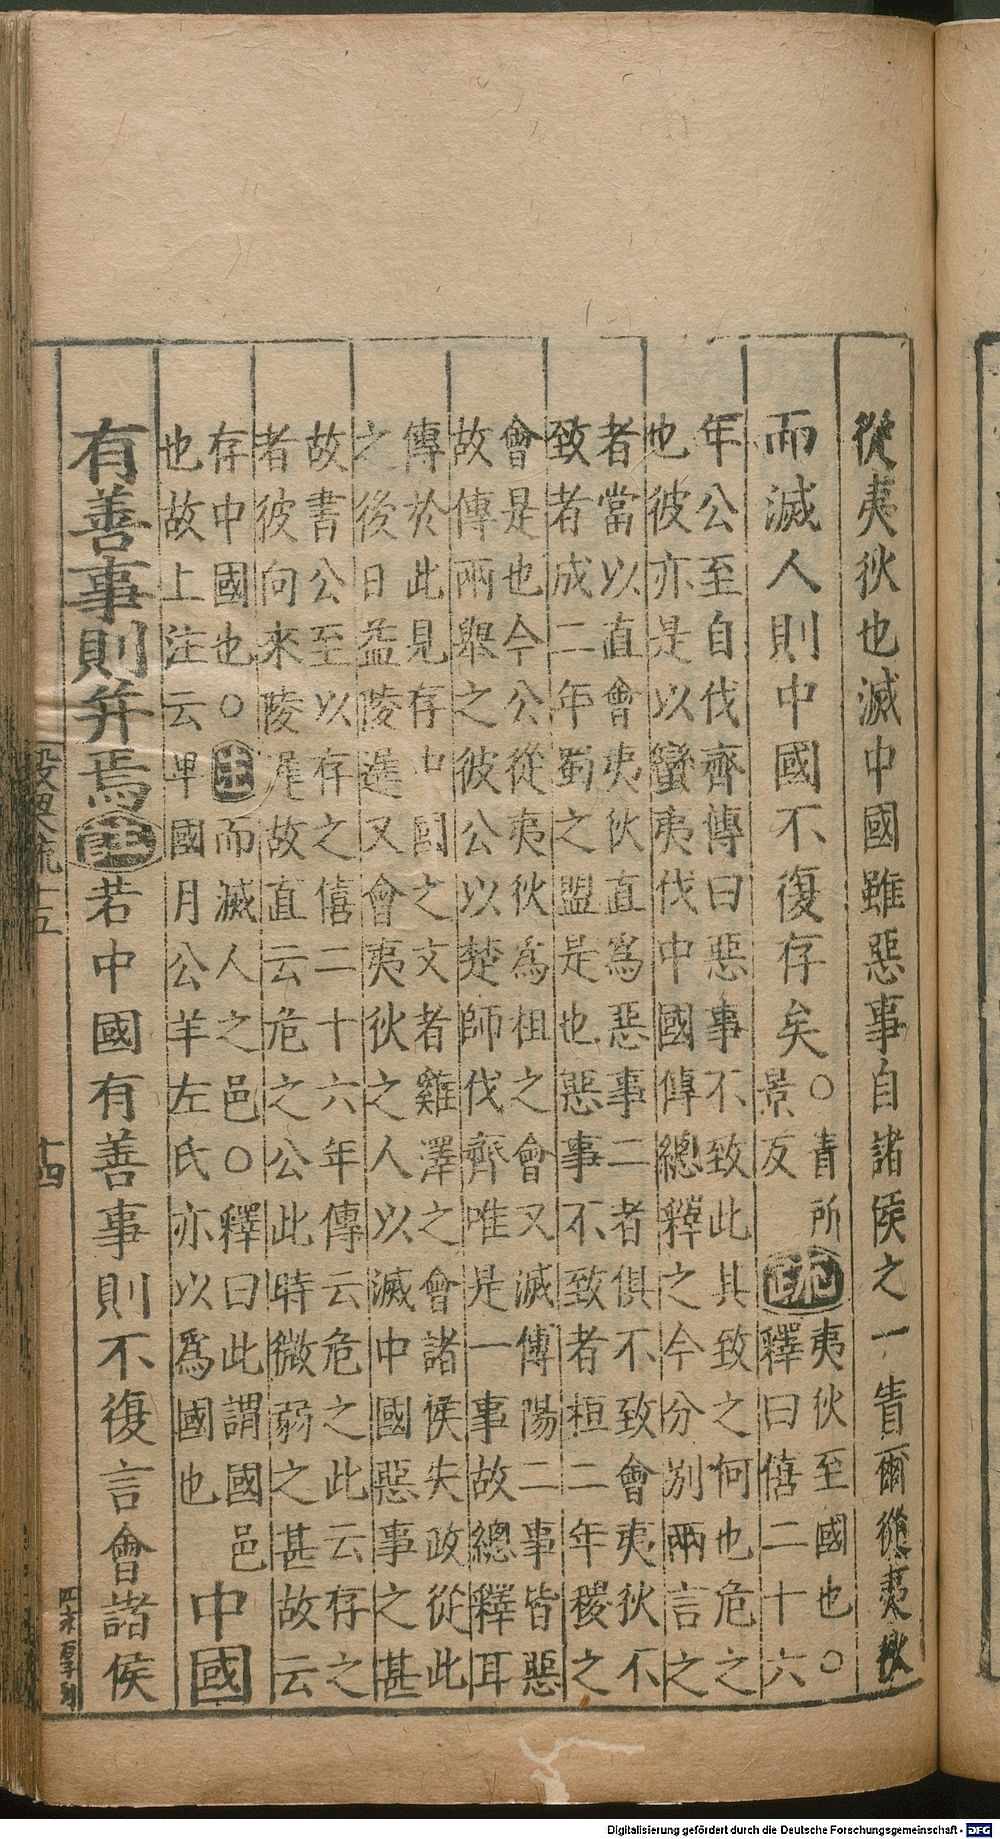 從夷狄也滅中國雖惡事自諸侯之一眚爾從夷狄
而滅人則中國不復存矣○眚所
景反
疏
夷狄至國也○
釋曰僖二十六
年公至自伐齊傳曰惡事不致此其致之何也危之
也彼亦是以蠻夷伐中國傳總釋之今分別兩言之
者當以直會夷狄直為惡事二者俱不致會夷狄不
致者成二年蜀之盟是也惡事不致者桓二年稷之
會是也今公從夷狄為柤之會又滅傳陽二事皆惡
故傳兩舉之彼公以楚師伐齊唯是一事故總釋耳
傳於此見存中國之文者雞澤之會諸侯失政從此
之後日益陵遲又會夷狄之人以滅中國惡事之甚
故書公至以存之僖二十六年傳云危之此云存之
者彼向來陵遲故直云危之公此時微弱之甚故云
存中國也○注而滅人之邑○釋曰此謂國邑
也故上注云卑國月公羊左氏亦以爲國也
中國
有善事則并焉注若中國有善事則不復言會諸侯
十四